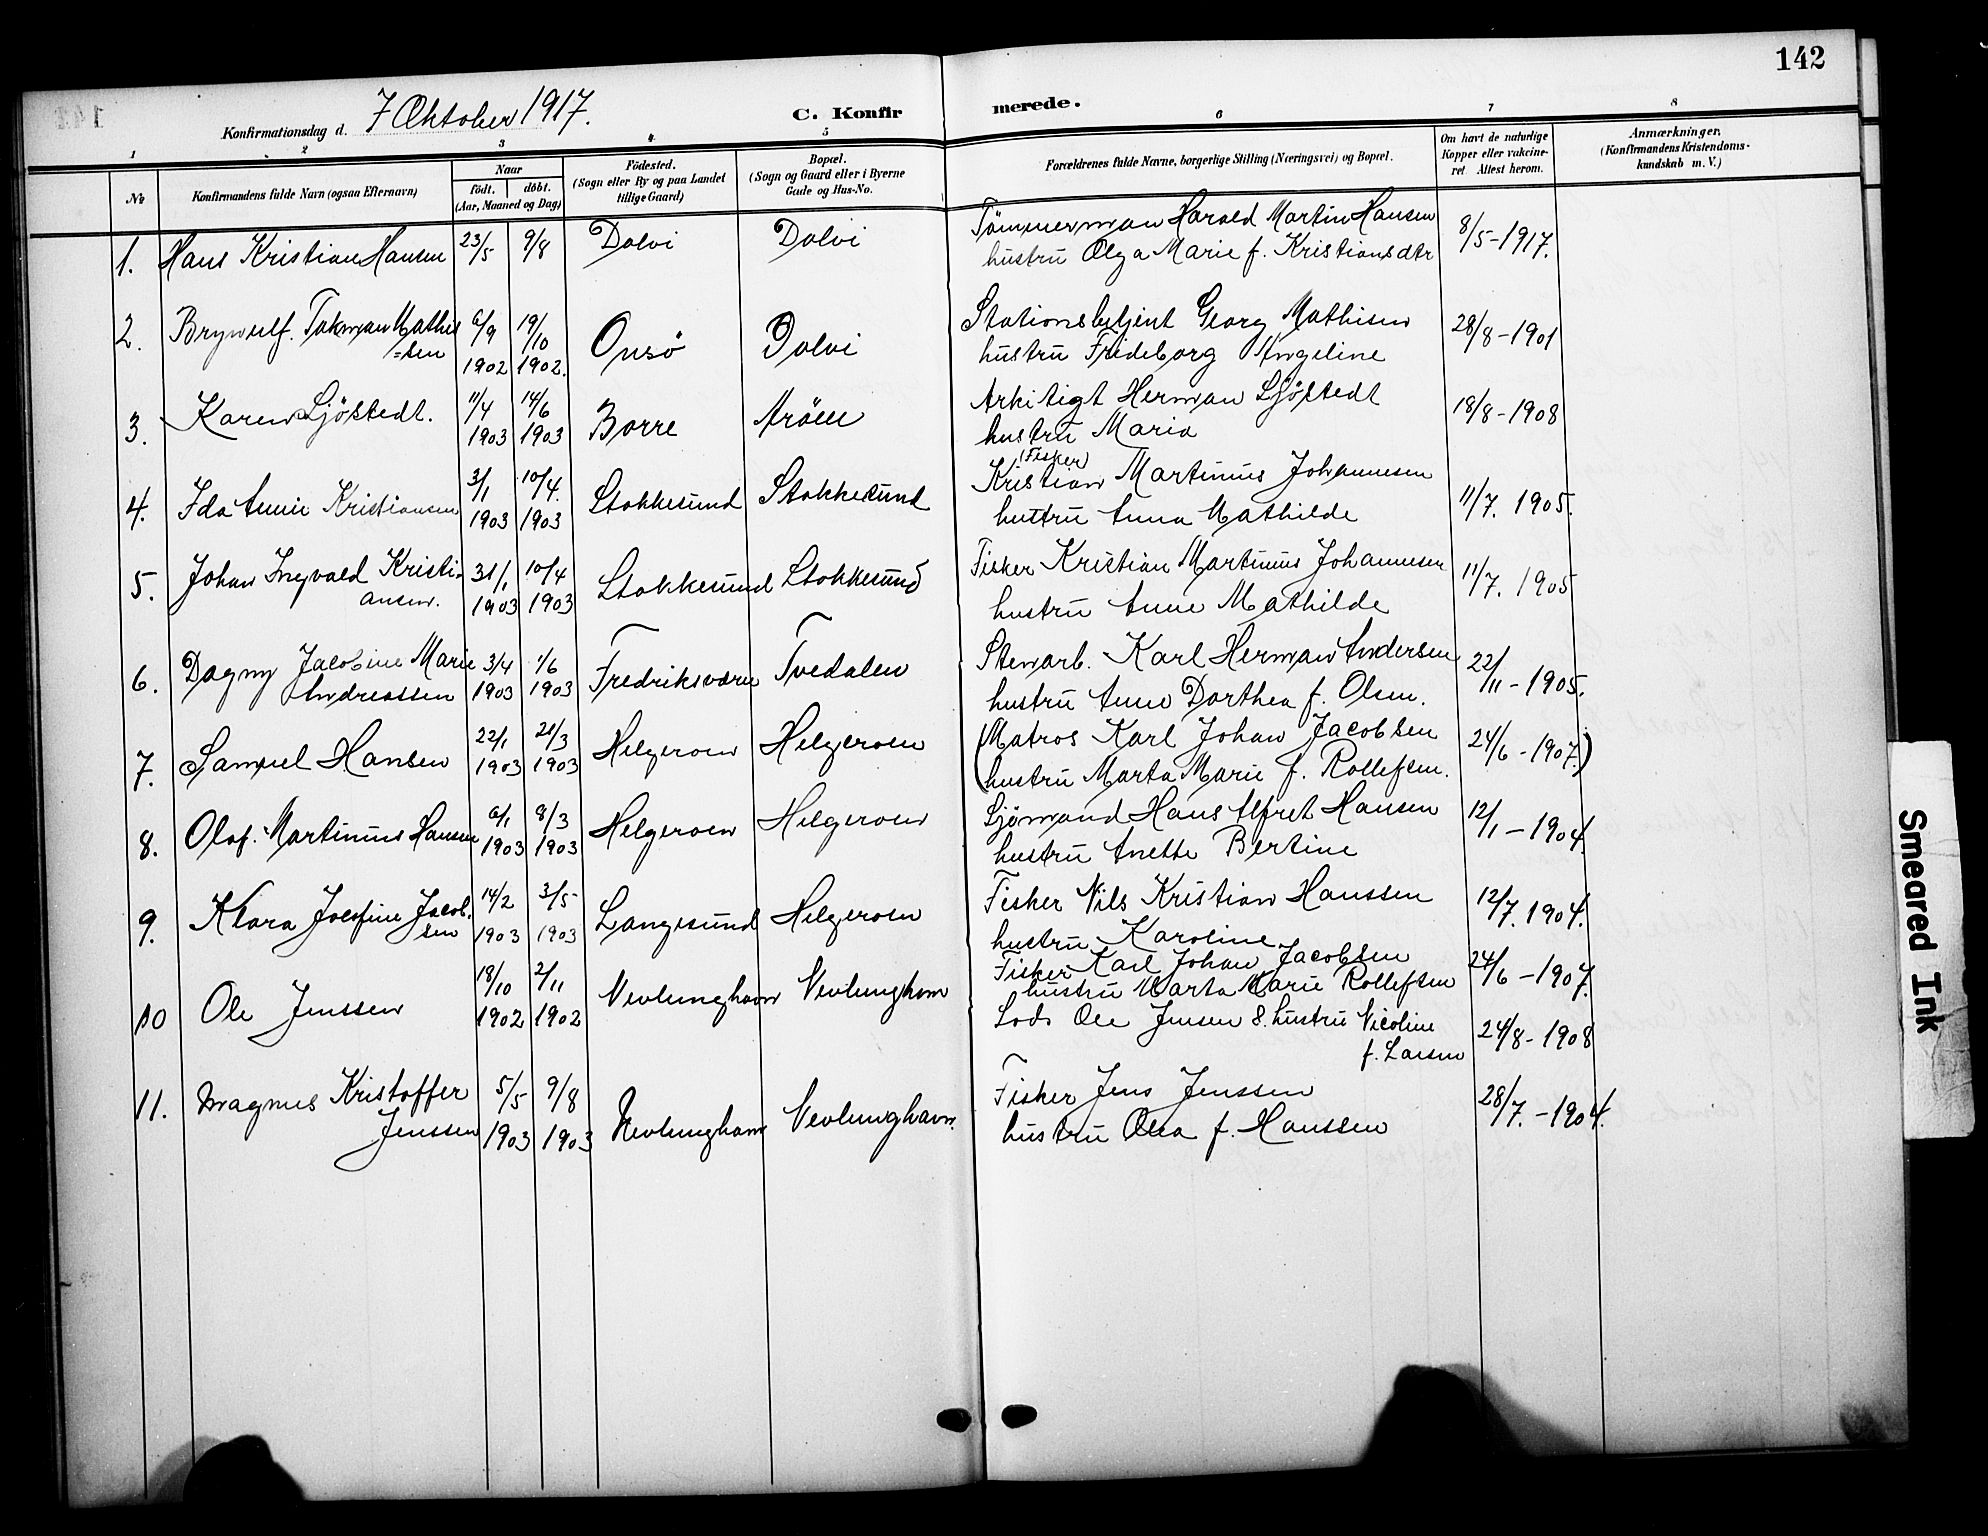 142
Konfirmationsdag d. 7 Oktober 1917. C. Konfirmerede.
1 2 3 4 5 6 7 8
No Konfirmandens fulde Navn (ogsaa Efternavn) Naar født. døbt. (Aar, Maaned og Dag) Födested. (Sogn eller By og paa Landet tillige Gaard) Bopæl. (Sogn og Gaard eller i Byerne Gade og Hus-No. Forældrenes fulde Navne, borgerlige Stilling (Næringsvei) og Bopæl. Om havt de naturlige Kopper eller vakcineret. Attest herom. Anmærkninger. (Konfirmandens Kristendomskundskab m. V.)
1. Hans Kristian Hansen 23/5 9/8 Dolvi Dolvi Tömmerman Harald Martin Hansen 8/5-1917.
hustru Olga Marie f. Kristiansdtr
2. Brynulf. Takman Mathi=sen 6/9 1902 19/10 1902. Onsö Dolvi Stationsbetjent Georg Mathisen 28/8-1901
hustru Frideborg Angeline
3. Karen Sjöstedt. 11/4 1903 14/6 1903 Borre Aröen Arkitigt Herman Sjöstedt 18/8-1908
hustru Maria
4. Ida Annie Kristiansen 3/1 1903 10/4. 1903 Stokkesund Stokkesund (Fisker) Kristian Martinus Johannesen 11/7. 1905.
hustru Anna Mathilde
5. Johan Ingvald Kristiansen. 31/1 1903 10/4 1903 Stokkesund Stokkesund Fisker Kristian Martinus Johannesen 11/7. 1905
hustru Anne Mathilde
6. Dagny Jacobine Marie Andreassen 3/4 1903 1/6 1903 Fredriksværn Tvedalen Stenarb. Karl Herman Andersen 22/11-1905.
hustru Anne Dorthea f. Olsen.
7. Samuel Hansen 22/1 1903 21/3 1903 Helgeroen Helgeroen (Matros Karl Johan Jacobsen 24/6-1907.)
(hustru Marta Marie f. Rollefsen.
8. Olaf. Martinius Hansen 6/1 1903 8/3 1903 Helgeroen Helgeroen Sjömand Hans Alfret Hansen 12/1-1904.
hustru Anette Bertine
9. Klara Josefine Jacobsen 14/2 1903 3/5 1903 Langesund Helgeroen Fisker Nils Kristian Hanssen 12/7. 1904.
hustru Karoline
Fisker Karl Johan Jacobsen 24/6-1907.
hustru Marta Marie Rollefsen
10 Ole Jenssen 18/10 1902 2/11 1902 Nevlunghavn Nevlunghavn Lods Ole Jensen & hustru Nicoline 24/8-1908
f. Larsen
11. Magnus Kristoffer Jenssen 5/5 1903 9/8 1903 Nevlunghavn Nevlunghavn. Fisker Jens Jenssen 28/7.-1904.
hustru Olea f. Hanssen
Smeared Ink